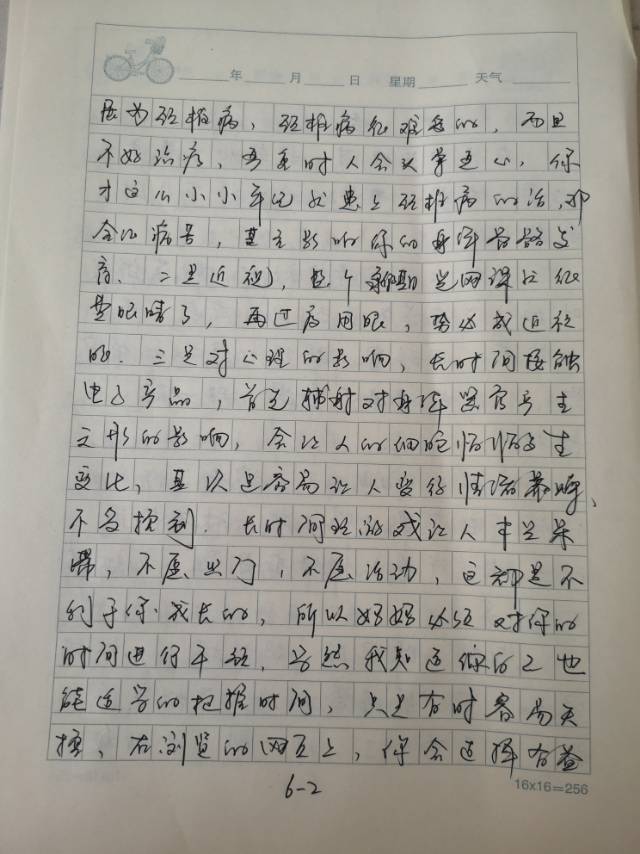 年 月 日 星期 天气
颈椎病，颈椎病很难受的，而且
不好治疗，严重时人会头晕恶心，你
才这么小小年纪就患上颈椎病的话，那
会让病号，甚至影响你的身体骨骼发
育。二是近视，这个假期光网课已经
要眼瞎了，再过店用眼，势必成近视
眼。三是对心理的影响，长时间接触
电子产品，首先辐射对身体是有产生
无形的影响，会让人的细胞悄悄发生
变化，甚以是容易让人变得情绪暴躁、
不易控制。长时间玩游戏让人半光呆
滞，不愿出门，不愿活动，这都是不
利于你成长的，所以妈妈必须对你的
时间进行干预，当然我知道你自己也
能适当的把握时间，只是有时容易失
控，在浏览的网页上，你会选择有益
6-2
16x16=256